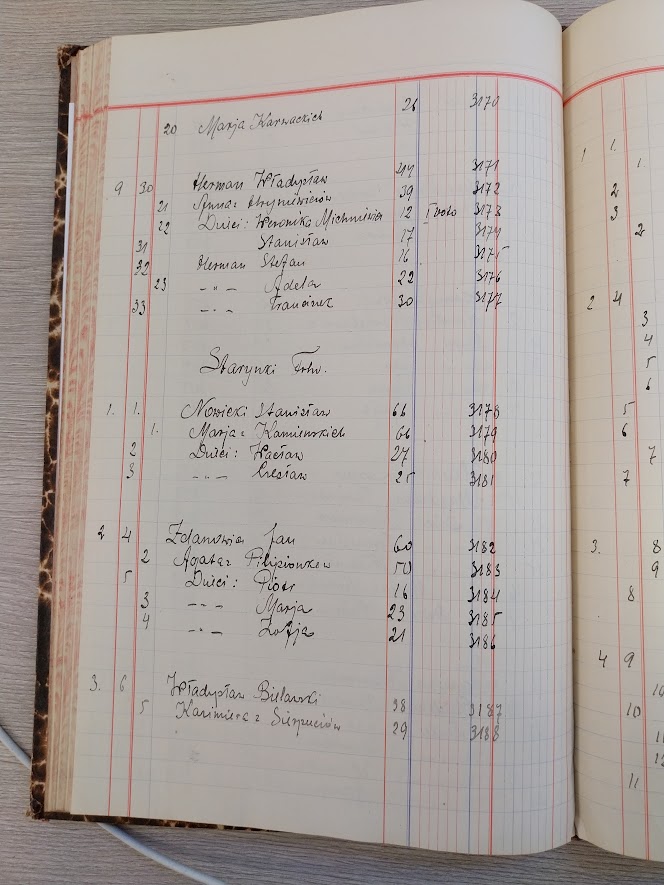 20 Marja Karwackich 26 3170
9 30 Herman Władysław 44 3171
21 Anna z Hryniewiczów 39 3172
22 Dzieci: Weronika Michniewicz 12 I voto 3173
31 Stanisław 17 3174
32 Herman Stefan 16 3175
23 -"- Adela 22 3176
33 -"- Franciszek 30 3177
Starynki Folw.
1. 1. Nowicki Stanisław 66 3178
1. Marja z Kamieńskich 66 3179
2 Dzieci: Wacław 27 3180
3 -"- Czesław 25 3181
2 4 Zdanowicz Jan 60 3182
2 Agata z 50 3183
5 Dzieci: Piotr 16 3184
3 -"- Marja 23 3185
4 -"- Zofja 21 3186
3. 6 Władysław Bielawski 38 3187
5 Kazimiera z 29 3188
1 1.
1.
2
3
2
2 4
3
4
5
6
5
6
7
7
3. 8
9
8
4 9
10
10
11
12
11